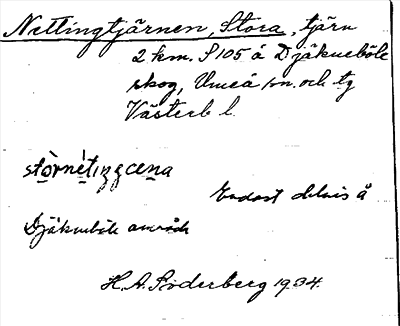 Nettingtjärnen, Stora, tjärn
2 km. S 105 å Djäkneböle
skog, Umeå sn. och tg
Västerb l.
Endast delvis å
Djäkneböle område
H. A. Söderberg 1934.